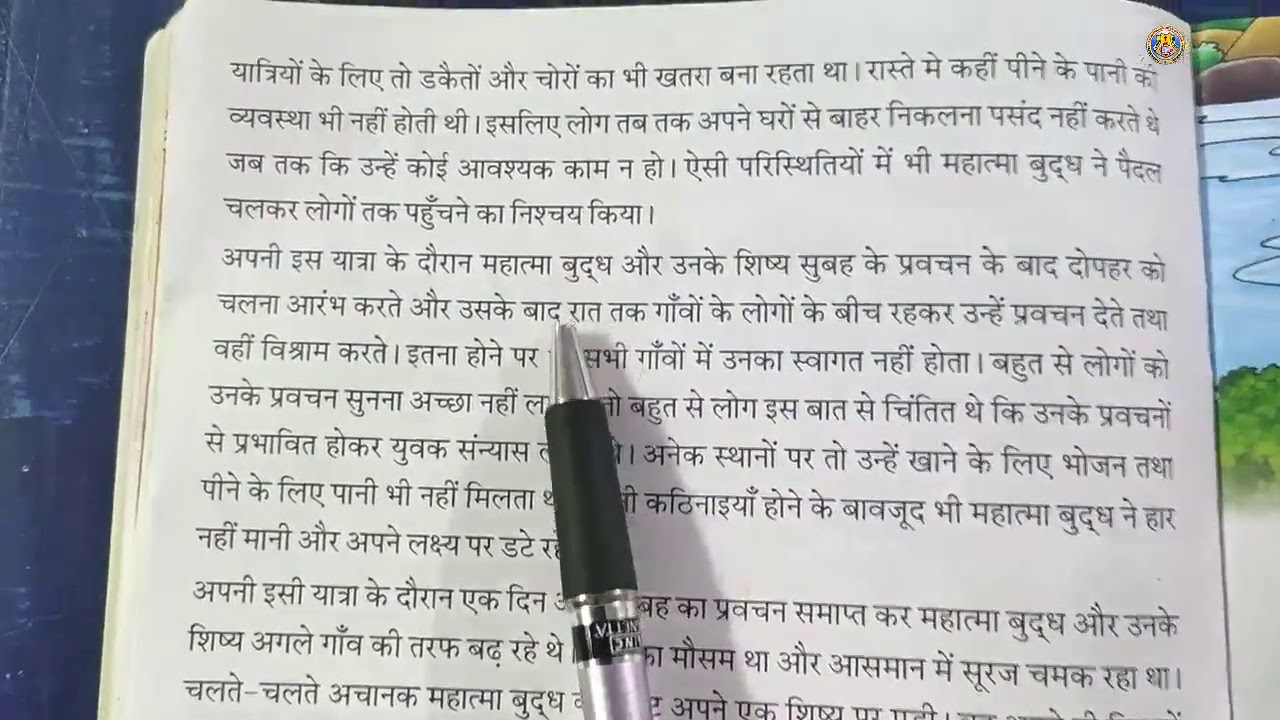 यात्रियों के लिए तो डकैतों और चोरों का भी खतरा बना रहता था। रास्ते मे कहीं पीने के पानी की
व्यवस्था भी नहीं होती थी। इसलिए लोग तब तक अपने घरों से बाहर निकलना पसंद नहीं करते थे
जब तक कि उन्हें कोई आवश्यक काम न हो। ऐसी परिस्थितियों में भी महात्मा बुद्ध ने पैदल
चलकर लोगों तक पहुँचने का निश्चय किया।
अपनी इस यात्रा के दौरान महात्मा बुद्ध और उनके शिष्य सुबह के प्रवचन के बाद दोपहर को
चलना आरंभ करते और उसके बाद रात तक गाँवों के लोगों के बीच रहकर उन्हें प्रवचन देते तथा
वहीं विश्राम करते। इतना होने पर सभी गाँवों में उनका स्वागत नहीं होता। बहुत से लोगों को
उनके प्रवचन सुनना अच्छा नहीं बहुत से लोग इस बात से चिंतित थे कि उनके प्रवचनों
से प्रभावित होकर युवक संन्यास अनेक स्थानों पर तो उन्हें खाने के लिए भोजन तथा
पीने के लिए पानी भी नहीं मिलता कठिनाइयाँ होने के बावजूद भी महात्मा बुद्ध ने हार
नहीं मानी और अपने लक्ष्य पर डटे
अपनी इसी यात्रा के दौरान एक दिन का प्रवचन समाप्त कर महात्मा बुद्ध और उनके
शिष्य अगले गाँव की तरफ बढ़ रहे थे। मौसम था और आसमान में सूरज चमक रहा था।
चलते-चलते अचानक महात्मा बुद्ध अपने एक शिष्य पर पड़ी।